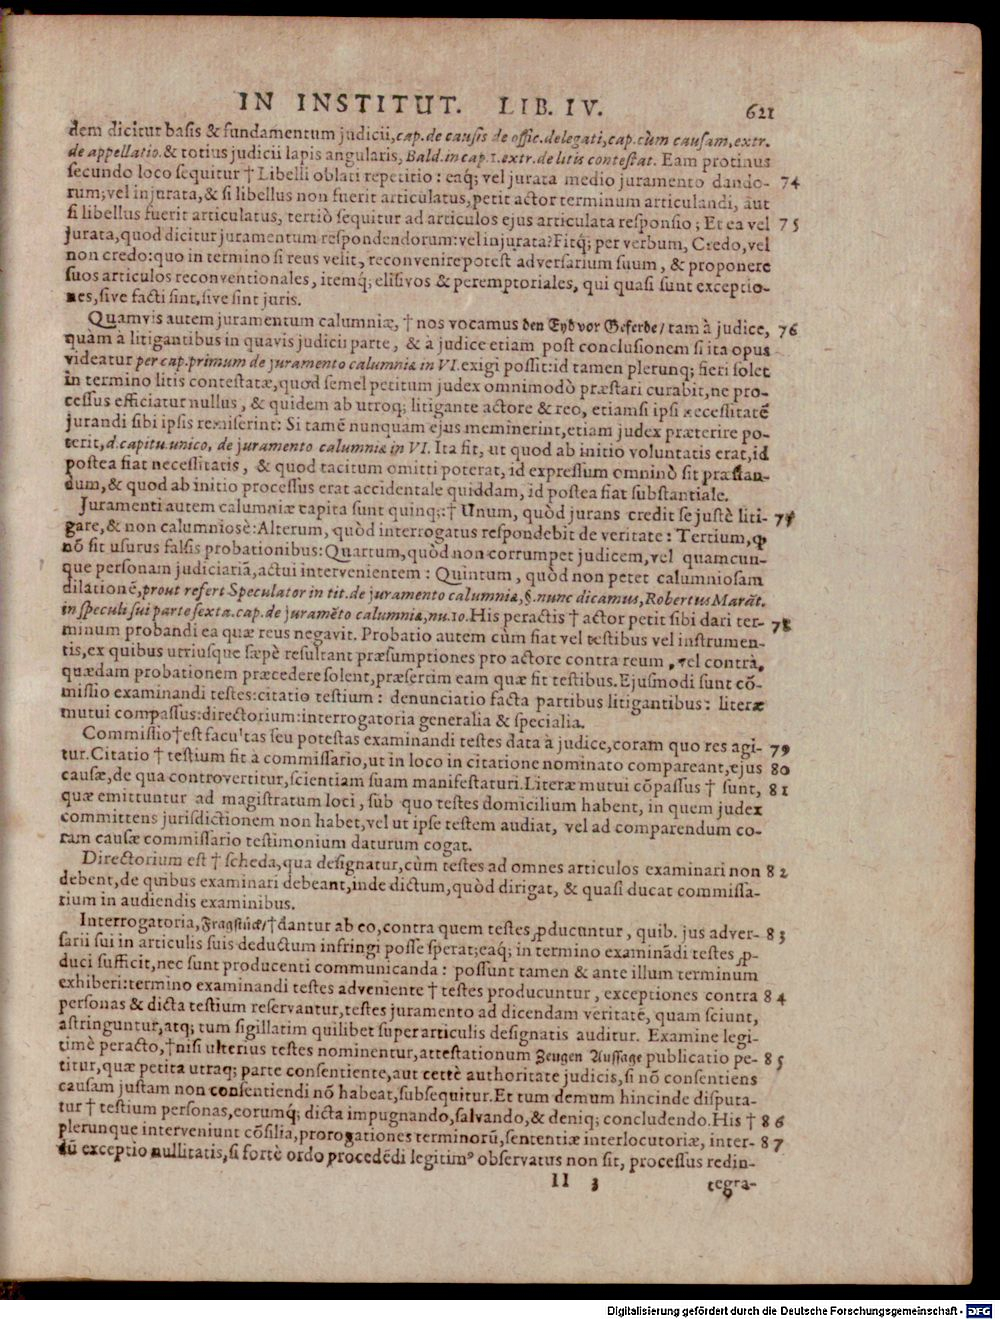 IN INSTITUT. LIB. IV. 621
dem dicitur basis & fundamentum judicii, cap. de causis de offic. delegati, cap. cùm causam, extr.
de appellatio. & totius judicii lapis angularis, Bald. in cap. 1. extr. de litis contestat. Eam protinus
secundo loco sequitur † Libelli oblati repetitio: eaq; vel jurata medio juramento dando- 74
rum; vel injurata, & si libellus non fuerit articulatus, petit actor terminum articulandi, aut
si libellus fuerit articulatus, tertiò sequitur ad articulos ejus articulata responsio; Et ea vel 75
jurata, quod dicitur juramentum respondendorum: vel injurata? Fitq; per verbum, Credo, vel
non credo: quo in termino si reus velit, reconvenire potest adversarium suum, & proponere
suos articulos reconventionales, itemq; elisivos & peremptoriales, qui quasi sunt exceptio-
nes, sive facti sint, sive sint juris.
Quamvis autem juramentum calumniæ, † nos vocamus den Eyd vor Geferde/ tam à judice, 76
quàm à litigantibus in quavis judicii parte, & à judice etiam post conclusionem si ita opus
videatur per cap. primum de juramento calumniæ in VI. exigi possit: id tamen plerunq; fieri solet
in termino litis contestatæ, quod semel petitum judex omnimodò præstari curabit, ne pro-
cessus efficiatur nullus, & quidem ab utroq; litigante actore & reo, etiamsi ipsi necessitatē
jurandi sibi ipsis remiserint: Si tamē nunquam ejus meminerint, etiam judex præterire po-
terit, d. capitu. unico, de juramento calumniæ in VI. Ita fit, ut quod ab initio voluntatis erat, id
postea fiat necessitatis, & quod tacitum omitti poterat, id expressum omninò sit præstan-
dum, & quod ab initio processus erat accidentale quiddam, id postea fiat substantiale.
Juramenti autem calumniæ capita sunt quinq;: † Unum, quòd jurans credit se justè liti- 77
gare, & non calumniosè: Alterum, quòd interrogatus respondebit de veritate: Tertium, ꝙ
nō sit usurus falsis probationibus: Quartum, quòd non corrumpet judicem, vel quamcun-
que personam judiciariā, actui intervenientem: Quintum, quòd non petet calumniosam
dilationē, prout refert Speculator in tit. de juramento calumniæ, §. nunc dicamus, Robertus Marāt.
in speculi sui parte sexta. cap. de juramēto calumniæ, nu. 10. His peractis † actor petit sibi dari ter- 78
minum probandi ea quæ reus negavit. Probatio autem cùm fiat vel testibus vel instrumen-
tis, ex quibus utriusque sæpè resultant præsumptiones pro actore contra reum, vel contrà,
quædam probationem præcedere solent, præsertim eam quæ fit testibus. Ejusmodi sunt cō-
missio examinandi testes: citatio testium: denunciatio facta partibus litigantibus: literæ
mutui compassus: directorium: interrogatoria generalia & specialia.
Commissio † est facultas seu potestas examinandi testes data à judice, coram quo res agi- 79
tur. Citatio † testium fit à commissario, ut in loco in citatione nominato compareant, ejus 80
causæ, de qua controvertitur, scientiam suam manifestaturi. Literæ mutui cōpassus † sunt, 81
quæ emittuntur ad magistratum loci, sub quo testes domicilium habent, in quem judex
committens jurisdictionem non habet, vel ut ipse testem audiat, vel ad comparendum co-
ram causæ commissario testimonium daturum cogat.
Directorium est † scheda, qua designatur, cùm testes ad omnes articulos examinari non 82
debent, de quibus examinari debeant, inde dictum, quòd dirigat, & quasi ducat commissa-
rium in audiendis examinibus.
Interrogatoria, Fragstück/ † dantur ab eo, contra quem testes ꝓducuntur, quib. jus adver- 83
sarii sui in articulis suis deductum infringi posse sperat; eaq; in termino examinādi testes ꝓ-
duci sufficit, nec sunt producenti communicanda: possunt tamen & ante illum terminum
exhiberi: termino examinandi testes adveniente † testes producuntur, exceptiones contra 84
personas & dicta testium reservantur, testes juramento ad dicendam veritatē, quam sciunt,
astringuntur, atq; tum sigillatim quilibet super articulis designatis auditur. Examine legi-
timè peracto, † nisi ulterius testes nominentur, attestationum Zeugen Aussage publicatio pe- 85
titur, quæ petita utraq; parte consentiente, aut certè authoritate judicis, si nō consentiens
causam justam non consentiendi nō habeat, subsequitur. Et tum demum hincinde disputa-
tur † testium personas, eorumq; dicta impugnando, salvando, & deniq; concludendo. His † 86
plerunque interveniunt cōsilia, prorogationes terminorū, sententiæ interlocutoriæ, inter- 87
dū exceptio nullitatis, si fortè ordo procedēdi legitimꝰ observatus non sit, processus redin-
II 3 tegra-
Digitalisierung gefördert durch die Deutsche Forschungsgemeinschaft - DFG